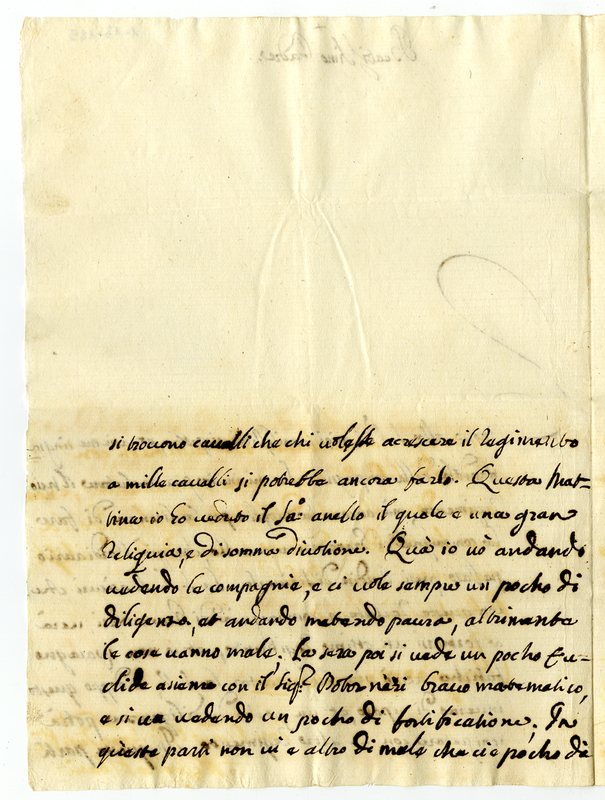 si trovono cavalli che chi volesse acrescere il Regimento
a mille cavalli si potrebbe ancora farlo. Questa Mat=
tina io ho veduto il Sa.º anello il quale e una gran
Reliquia, e di somma divotione. Quà io vò andando
vedendo le compagnie, e ci vole sempre un pocho di
diligenza, et andando metendo paura, altrimenta
le cose vanno male. La sera poi si vede un pocho Eu=
clide asieme con il Sig.r Neri bravo matematico,
e si va vedendo un pocho di fortificatione. In
queste parti non vi e altro di male che ci e pocho da